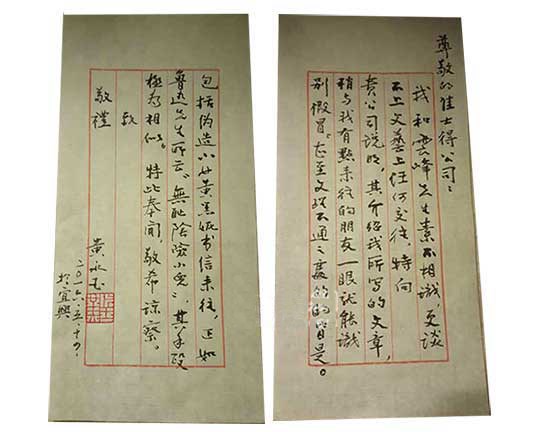 尊敬的佳士得公司：
我和雲峰先生素不相識，更談
不上文藝上任何交往，特向
貴公司説明，其介紹我所写的文章，
稍与我有點来往的朋友一眼就能識
别假冒。甚至文理不通之處皆是。
包括伪造小女黄黑妮书信来往，正如
魯迅先生所云“無恥陰險小兒”，其手段
極为相似。特此奉聞，敬希諒察。
致
敬禮
黄永玉
二〇一六·五·十四·
於宜興